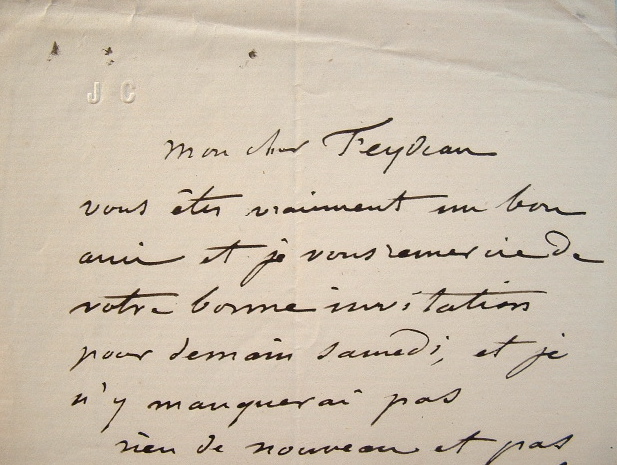 J C
Mon cher Feydeau
vous êtes vraiment un bon
ami et je vous remercie de
votre bonne invitation
pour demain samedi, et je
n'y manquerai pas
rien de nouveau et pas